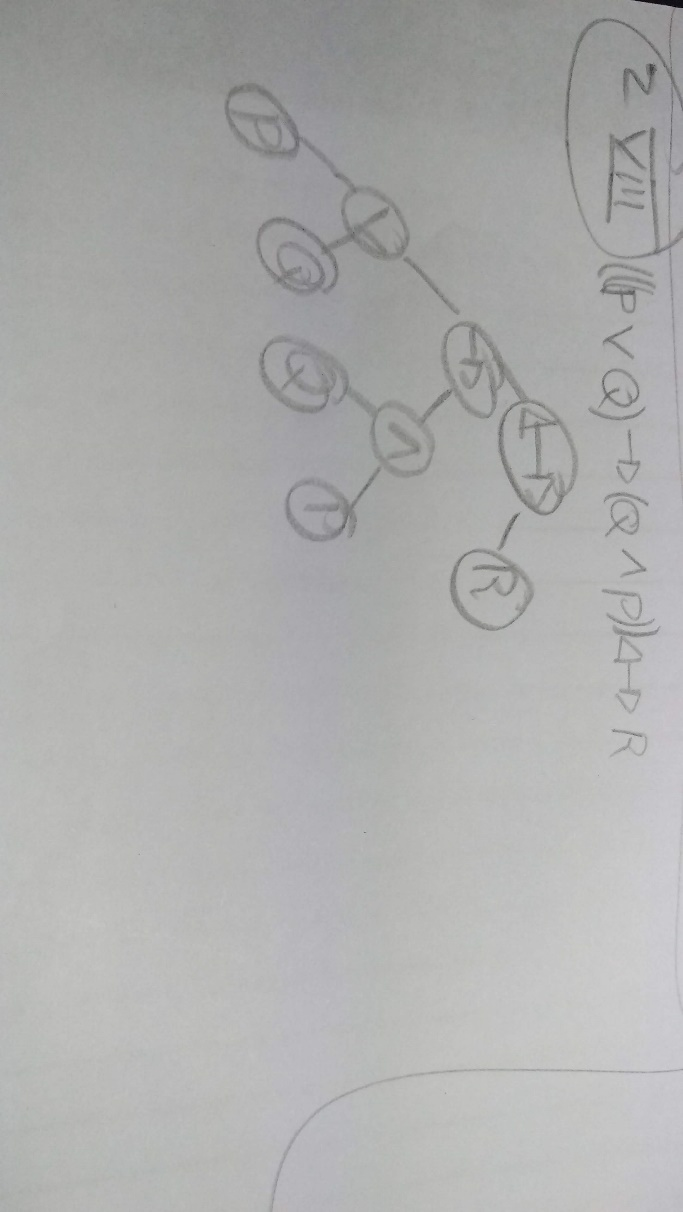 2 VIII (((P ∨ Q) → (Q ∧ P)) ↔ R
↔
→ R
∨ ∧
P Q Q P